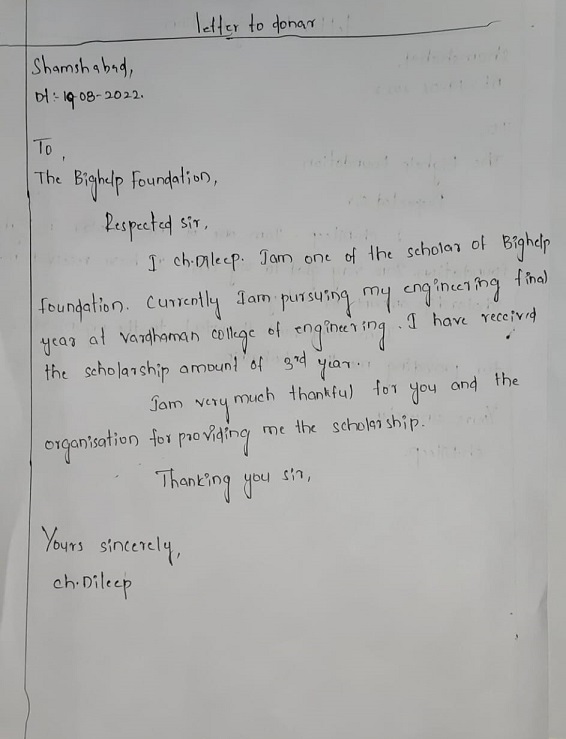 letter to donar
Shamshabad,
Dt:- 19-08-2022.
To,
The Bighelp Foundation,
Respected sir,
I ch.Dileep. Iam one of the scholar of Bighelp
foundation. Currently Iam pursuing my engineering final
year at Vardhaman college of engineering. I have received
the scholarship amount of 3rd year.
Iam very much thankful for you and the
organisation for providing me the scholarship.
Thanking you sir,
Yours sincerely,
ch.Dileep